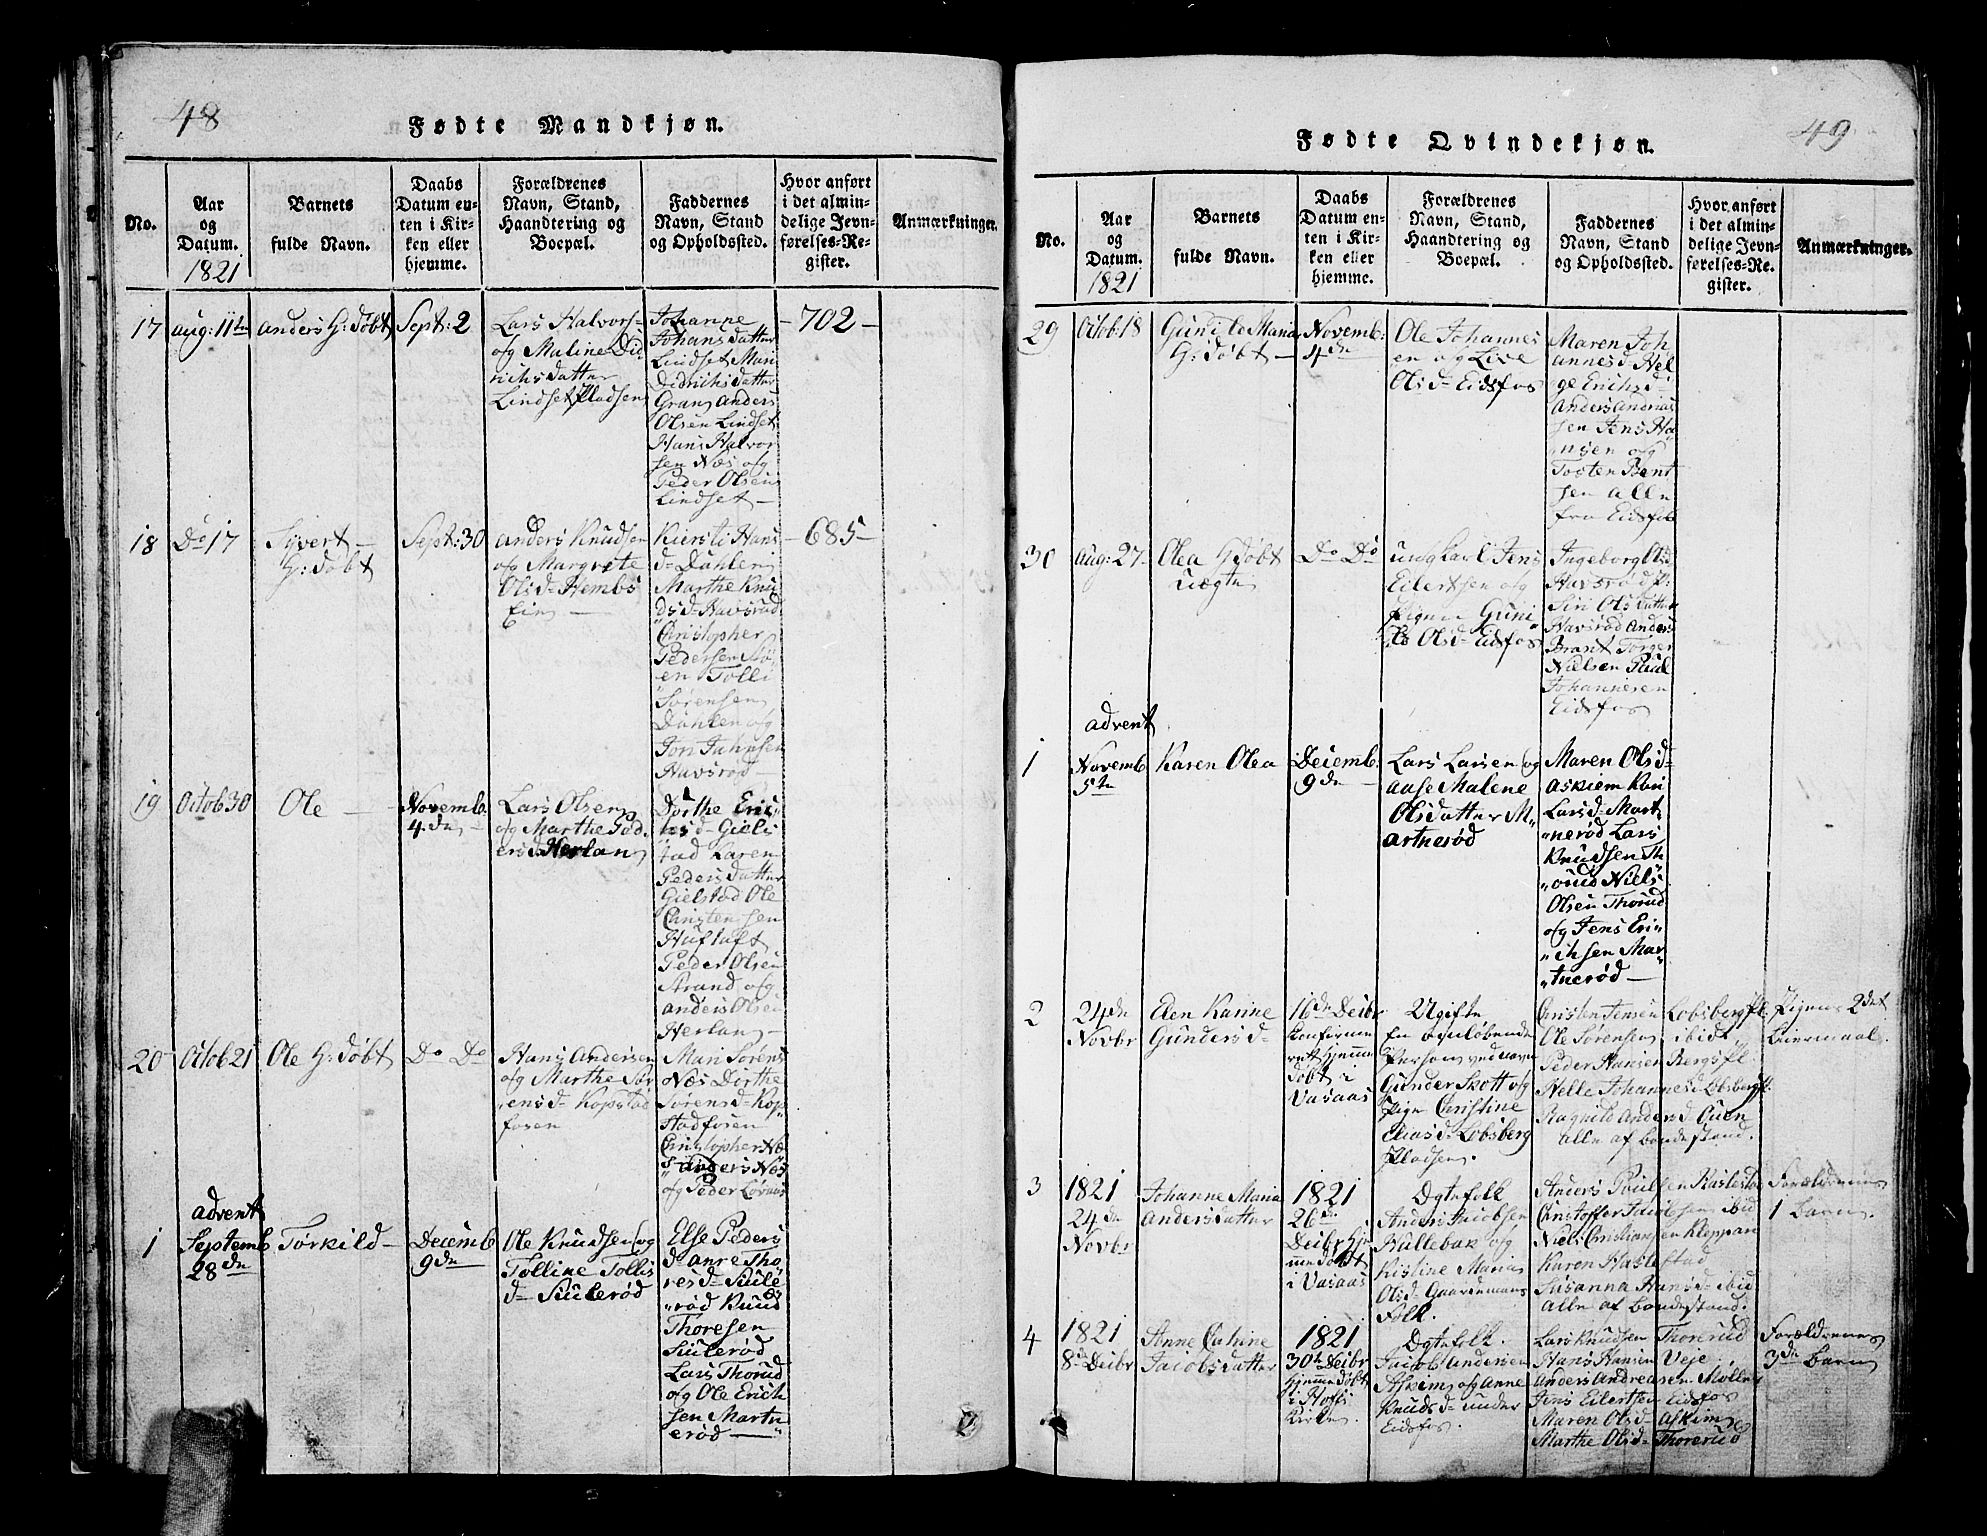 48
Fødte Mandkjøn.
No.
Aar
og
Datum.
1821
Barnets
fulde Navn.
Daabs
Datum en-
ten i Kir-
ken eller
hjemme.
Forældrenes
Navn, Stand,
Haandtering og
Boepæl.
Faddernes
Navn, Stand
og Opholdssted.
Hvor anført
i det almin-
delige Jevn-
førelses-Re-
gister.
Anmærkninger.
17
aug: 11te
anders H: døbt
Sept: 2
Lars Halvors-
og Maline Did
richsdatter
Lindset Pladsen
Johanne
Johansdatter
Lindset Mari
Didrichsdatter
Gran anders
Olsen Lindset
Hans Halvor
sen Næs og
Peder Olsen
Lindset -
- 702 -
18
Do 17
Syvert -
H: døbt
Sept: 30
anders Knudsen
og Margrete
Olsd- Hembs
Eie -
Kiersti Hans
d- Dahlen
Marthe Knu
dsd- Havsrud
Christopher
Pedersen Mø
en Tolli
Sørensen
Dahlen og
Havsrød -
- 685 -
19
Octob 30
Ole -
Novemb.
4de -
Lars Olsen
og Marthe Ped
ersd Herlan
Dorthe Eric
hsd- Giels
tad Karen
Pedersdatter
Gielstad Ole
Christensen
Huflaft
Peder Olsen
Strand og
anders Olsen
Herlan -
20
Octob 21
Ole H: døbt
Do Do
Hans Andersen
og Marthe Sør
ensd- Kopstad
fosen
Mari Sørens
Næs Dorthe
Sørensd- Kop
stadfosen
Christopher Næ
s anders Næs
og Peder
advent
1
Septemb
28de
Torkild -
Decemb
9de
Ole Knudsen og
Tolline Tollis
d- Suulerød
Else Peders
d- anne Tho
resd- Suule
rød Knud
Thoresen
Suulerød
Lars Thorud
og Ole Erich
sen Martn
erød -
49
Fødte Qvindekjøn.
No.
Aar
og
Datum.
1821
Barnets
fulde Navn.
Daabs
Datum en-
ten i Kir-
ken eller
hjemme.
Forældrenes
Navn, Stand,
Haandtering og
Boepæl.
Faddernes
Navn, Stand
og Opholdssted.
Hvor anført
i det almin-
delige Jevn-
førelses-Re-
gister.
Anmærkninger.
29
Octob 18
Gunile Maria
H: døbt -
Novemb:
4de
Ole Johannes
en og Live
Olsd- Eidsfos
Maren Joh
annesd- Hel
ge Erichsd-
Anders Andrias
sen Jens Ha
nsen og
Tosten Bent
sen alle
fra Eidsfos
30
aug: 27-
Olea H døbt
uægte
Do Do
ungkarl Jens
Eilertsen og
Pigen Guni
le Olsd- Eidsfos
Ingeborg Olsd
Havsrød
Siri Olsdatter
Havsrød Anders
Brant Torger
Nielsen Paul
Johannesen
Eidsfos
advent
1
Novemb
5te
Karen Olea
Decemb.
9de
Lars Larsen og
aase Malene
Olsdatter M-
artnerød
Maren Olsd-
askiem Kari
Larsd- Mart
nerød Lars
Knudsen Th
orud Niels
Olsen Thorud
og Jens Eri
chsen Mar-
tnerød -
2
24de
Novbr
Elen Karine
Gundersd-
16de Decbr
Konfirme
ret hjemme
døbt i
Vasaas
Ugifte
En omløbende
Person ved navn
Gunder Skott og
Pige Christine
Eliasd- Lobsberg
Pladsen.
Christen Jensen Lobsbergpl.
Ole Sørensen ibid
Peder Hansen Bergspl.
Helle Johannesd Lobsbergpl.
Ragnild Andersd Quen
alle af bondestand.
Pigens 2det
Leiermaal.
3
1821
24de
Novbr
Johanne Maria
Andersdatter
1821
26de
Decbr hje
mmedøbt
i Vasaas
Ægtefolk
Anders Jacobsen
Hullebak og
Kistine Marias
Olsd- Gaardmans
Folk.
Anders Poulsen Haslestad
Christoffer Jacobsen ibid
Niels Christiansen Kleppan
Karen Haslestad
Susanna Hansd- ibid
alle af bondestand.
Forældrenes
1 Barn.
4
1821
8de Decbr
Anne Catrine
Jacobsdatter
1821
30te Decbr
hjemmedøbt
i Hofs
Kirke.
Ægtefolk.
Jacob Andersen
Askim og Anne
Knudsd- under
Eidsfos.
Lars Knudsen Thorerud
Hans Hansen Veje
Anders Andreasen Møller
Jens Eilertsen Eidsfos
Maren Olsd- Askim
Marthe Olsd- Thorerud
Forældrenes
3de Barn